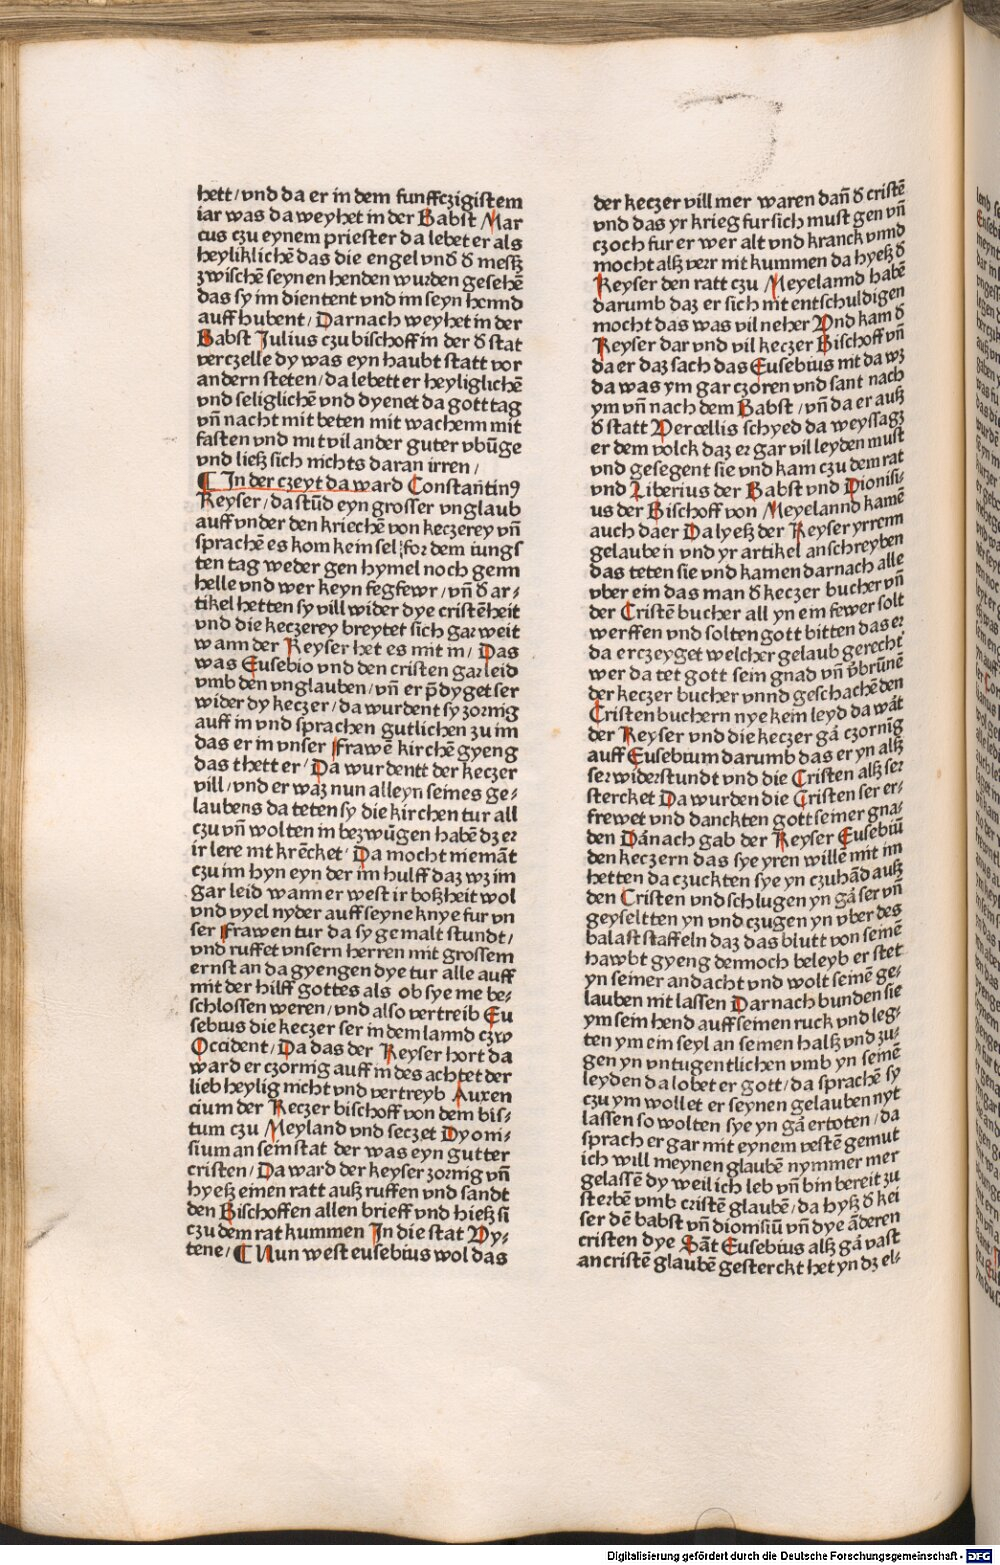 hett/vnd da er in dem funffczigistem
iar was da weyhet in der Babst Mar
cus czu eynem priester da lebet er als
heyliklichē das die engel vnd ð meſſz
zwischē seynen henden wurden gesehē
das sy im dientent vnd im seyn hennd
auff hubent/Darnach weyhet in der
Babst Julius czu bischoff in der ð stat
verczelle dy was eyn haubt statt vor
andern steten/da lebett er heyliglichē
vnd seliglichē vnd dyenet da gott tag
vñ nacht mit beten mit wachenn mit
fasten vnd mit vil ander guter vbūge
vnd ließ sich nichts daran irren/
¶ In der czeyt da ward Constañtinꝰ
Keyser/da stūd eyn grosser vnglaub
auff vnder den kriechē von keczerey vñ
sprachē es kom kein sel for dem iungs
ten tag weder gen hymel noch genn
helle vnd wer keyn fegfewr/vñ ð ar⸗
tikel hetten sy vill wider dye cristēheit
vnd die keczerey breytet sich gar weit
wann der Keyser het es mit in/Das
was Eusebio vnd den cristen gar leid
vmb den vnglauben/vñ er p̄dyget ser
wider dy keczer/da wurdent sy zornig
auff in vnd sprachen gutlichen zu im
das er in vnser Frawē kirchē gyeng
das thett er/Da wurdentt der keczer
vill/vnd er waz nun alleyn seines ge⸗
laubens da teten sy die kirchen tur all
czu vñ wolten in bezwūgen habē dz er
ir lere nit krēcket/Da mocht niemāt
czu im hyn eyn der im hulff daz wz im
gar leid wann er west ir boßheit wol
vnd vyel nyder auff seyne knye fur vn
ser Frawen tur da sy gemalt stundt/
vnd ruffet vnsern herren mit grossem
ernst an da gyengen dye tur alle auff
mit der hilff gottes als ob sye nie be⸗
schlossen weren/vnd also vertreib Eu
sebius die keczer ser in dem lannd czw
Occident/Da das der Keyser hort da
ward er czornig auff in des achtet der
lieb heylig nicht vnd vertreyb Auxen
cium der Keczer bischoff von dem bis⸗
tum czu Meyland vnd seczet Dyoni⸗
sium an sein stat der was eyn gutter
cristen/Da ward der keyser zornig vñ
hyeß einen ratt auß ruffen vnd sandt
den Bischoffen allen brieff vnd hieß si
czu dem rat kummen In die stat Vy⸗
tene/¶ Nun west eusebius wol das
der keczer vill mer waren dañ ð cristē
vnd das yr krieg fur sich must gen vñ
czoch fur er wer alt vnd kranck vnnd
mocht alß verr nit kummen da hyeß ð
Keyser den ratt czu Meyelannd habē
darumb daz er sich nit entschuldigen
mocht das was vil neher Vnd kam ð
Keyser dar vnd vil keczer Bischoff vñ
da er daz sach das Eusebius nit da wz
da was ym gar czoren vnd sant nach
ym vñ nach dem Babst/vñ da er auß
ð statt Vercellis schyed da weyssagz
er dem volck daz er gar vil leyden must
vnd gesegent sie vnd kam czu dem rat
vnd Liberius der Babst vnd Dionisi⸗
us der Bischoff von Meyelannd kamē
auch daer Da lyeß der Keyser yrrenn
gelauben vnd yr artikel anschreyben
das teten sie vnd kamen darnach alle
vber ein das man ð keczer bucher vñ
der Cristē bucher all yn em fewer solt
werffen vnd solten gott bitten das er
da erczeyget welcher gelaub gerecht
wer da tet gott sein gnad vñ v̄brūnē
der keczer bucher vnnd geschachē den
Cristen buchern nye kein leyd da wāt
der Keyser vnd die keczer gā czornig
auff Eusebium darumb das er yn alß
ser widerstundt vnd die Cristen alß ser
stercket Da wurden die Cristen ser er⸗
frewet vnd danckten gott seiner gna⸗
den Dānach gab der Keyser Eusebiū
den keczern das sye yren wille mit im
hetten da czuckten sye yn czuhād auß
den Cristen vnd schlugen yn gā ser vñ
geyseltten yn vnd czugen yn vber des
balast staffeln daz das blutt von seinē
hawbt gyeng dennoch beleyb er stet
yn seiner andacht vnd wolt seinē ge⸗
lauben nit lassen Darnach bunden sie
ym sein hend auff seinen ruck vnd leg⸗
ten ym ein seyl an seinen halß vnd zu⸗
gen yn vntugentlichen vmb yn seinē
leyden da lobet er gott/da sprachē sy
czu ym wollet er seynen gelauben nyt
lassen so wolten sye yn gā ertoten/da
sprach er gar mit eynem vestē gemut
ich will meynen glaubē nymmer mer
gelassē dy weil ich leb vñ bin bereit zu
sterbē vmb cristē glaubē/da hyß ð kei
ser dē babst vñ dionisiū vñ dye āderen
cristen dye Sāt Eusebius alß gā vast
an cristē glaubē gesterckt het yn dz el⸗
Digitalisierung gefördert durch die Deutsche Forschungsgemeinschaft - DFG